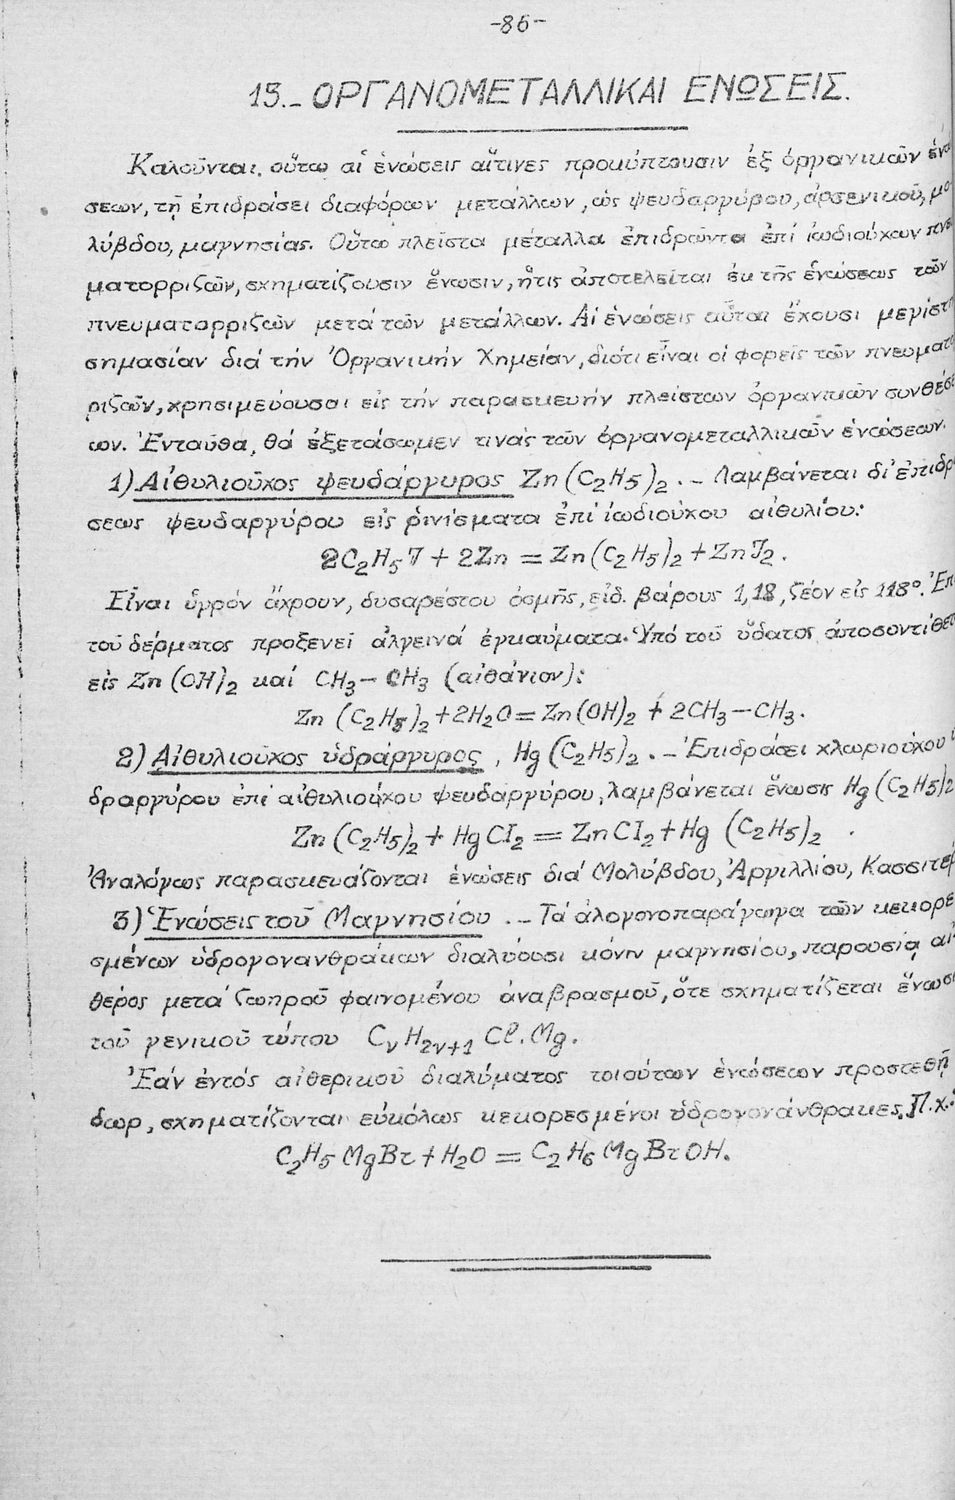 -86-
15.- ΟΡΓΑΝΟΜΕΤΑΛΛΙΚΑΙ ΕΝΩΣΕΙΣ.
Καλοῦνται. οὕτω αἱ ἑνώσεις αἵτινες προκύπτουσιν ἐξ ὀργανικῶν ἑνώ
σεων, τῇ ἐπιδράσει διαφόρων μετάλλων, ὡς ψευδαργύρου, ἀρσενικοῦ, μο
λύβδου, μαγνησίας. Οὕτω πλεῖστα μέταλλα ἐπιδρῶντα ἐπί ἰωδιούχων πνευ
ματορριζῶν, σχηματίζουσιν ἕνωσιν, ἥτις ἀποτελεῖται ἐκ τῆς ἑνώσεως τῶν
πνευματορριζῶν μετά τῶν μετάλλων. Αἱ ἑνώσεις αὗται ἔχουσι μεγίστη
σημασίαν διά τήν Ὀργανικήν Χημείαν, διότι εἶναι οἱ φορεῖς τῶν πνευματο
ριζῶν, χρησιμεύουσαι εἰς τήν παρασκευήν πλείστων ὀργανικῶν συνθέσε
ων. Ἐνταῦθα, θά ἐξετάσωμεν τινάς τῶν ὀργανομεταλλικῶν ἑνώσεων.
1) Αἰθυλιοῦχος ψευδάργυρος Zn(C₂H₅)₂.- Λαμβάνεται δι' ἐπιδρ
σεως ψευδαργύρου εἰς ῥινίσματα ἐπί ἰωδιούχου αἰθυλίου:
2C₂H₅J + 2Zn = Zn(C₂H₅)₂ + ZnJ₂.
Εἶναι ὑγρόν ἄχρουν, δυσαρέστου ὀσμῆς, εἰδ. βάρους 1,18, ζέον εἰς 118°. Ἐπι
τοῦ δέρματος προξενεῖ ἀλγεινά ἐγκαύματα. Ὑπό τοῦ ὕδατος ἀποσυντίθετ
εἰς Zn(OH)₂ καί CH₃-CH₃ (αἰθάνιον):
Zn(C₂H₅)₂ + 2H₂O = Zn(OH)₂ + 2CH₃-CH₃.
2) Αἰθυλιοῦχος ὑδράργυρος, Hg(C₂H₅)₂.- Ἐπιδράσει χλωριούχου ὑ
δραργύρου ἐπί αἰθυλιούχου ψευδαργύρου, λαμβάνεται ἕνωσις Hg(C₂H₅)₂
Zn(C₂H₅)₂ + HgCI₂ = ZnCI₂ + Hg(C₂H₅)₂.
Ἀναλόγως παρασκευάζονται ἑνώσεις διά Μολύβδου, Ἀργιλλίου, Κασσιτέρ
3) Ἑνώσεις τοῦ Μαγνησίου.- Τά ἁλογονοπαράγωγα τῶν κεκορε
σμένων ὑδρογονανθράκων διαλύουσι κόνιν μαγνησίου, παρουσίᾳ αἰ
θέρος μετά ζωηροῦ φαινομένου ἀναβρασμοῦ, ὅτε σχηματίζεται ἕνωσι
τοῦ γενικοῦ τύπου CᵥH₂ᵥ₊₁Cl.Mg.
Ἐάν ἐντός αἰθερικοῦ διαλύματος τοιούτων ἑνώσεων προστεθῇ
δωρ, σχηματίζονται εὐκόλως κεκορεσμένοι ὑδρογονάνθρακες. Π.χ.:
C₂H₅MgBr + H₂O = C₂H₆MgBrOH.